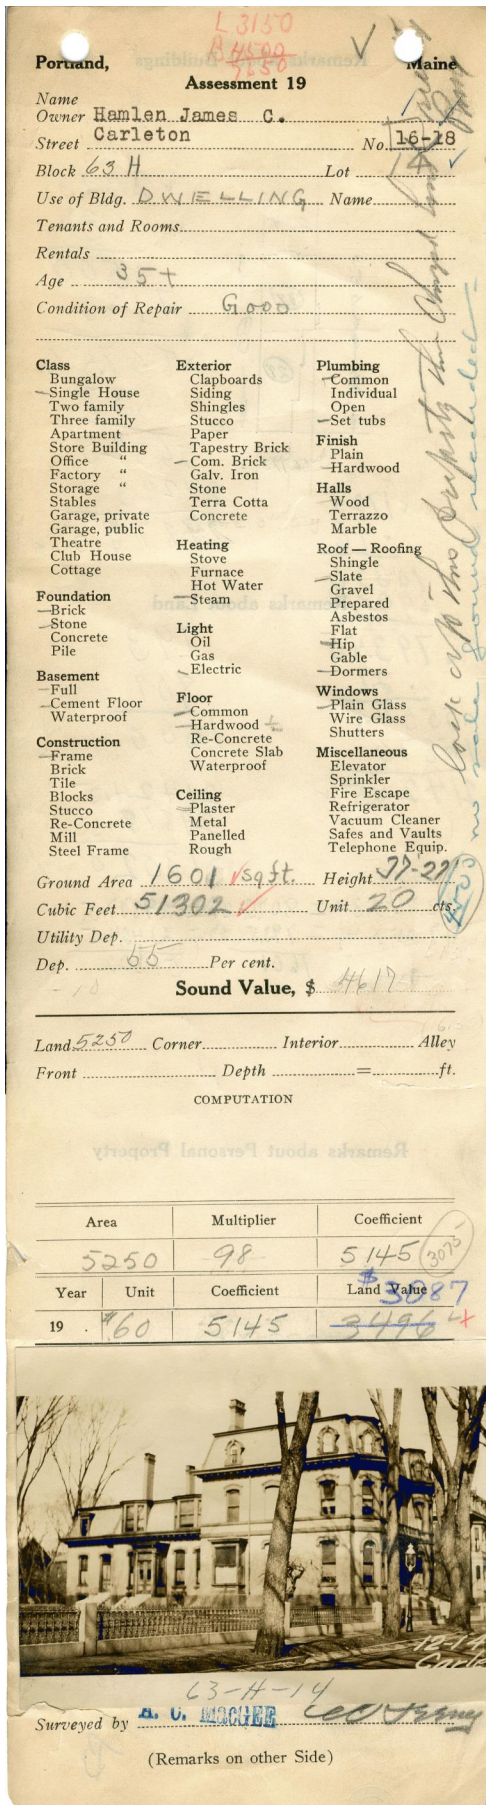 L 3150
B 4500
7650
Portland, Maine
Assessment 19
Name
Owner Hamlen James C.
Street Carleton No. 16-18
14
Block 63 H Lot
Use of Bldg. DWELLING Name
Tenants and Rooms
Rentals
Age 35+
Condition of Repair Good
Class
Bungalow
Single House
Two family
Three family
Apartment
Store Building
Office "
Factory "
Storage "
Stables
Garage, private
Garage, public
Theatre
Club House
Cottage
Foundation
Brick
Stone
Concrete
Pile
Basement
Full
Cement Floor
Waterproof
Construction
Frame
Brick
Tile
Blocks
Stucco
Re-Concrete
Mill
Steel Frame
Exterior
Clapboards
Siding
Shingles
Stucco
Paper
Tapestry Brick
Com. Brick
Galv. Iron
Stone
Terra Cotta
Concrete
Heating
Stove
Furnace
Hot Water
Steam
Light
Oil
Gas
Electric
Floor
Common
Hardwood ½
Re-Concrete
Concrete Slab
Waterproof
Ceiling
Plaster
Metal
Panelled
Rough
Plumbing
Common
Individual
Open
Set tubs
Finish
Plain
Hardwood
Halls
Wood
Terrazzo
Marble
Roof — Roofing
Shingle
Slate
Gravel
Prepared
Asbestos
Flat
Hip
Gable
Dormers
Windows
Plain Glass
Wire Glass
Shutters
Miscellaneous
Elevator
Sprinkler
Fire Escape
Refrigerator
Vacuum Cleaner
Safes and Vaults
Telephone Equip.
look up this property
no sale ground recorded
4500
Ground Area 1601 sq ft. Height 37-27
Cubic Feet 51302 Unit 20 cts.
Utility Dep.
Dep. 55 Per cent.
Sound Value, $ 4617
Land 5250 Corner Interior Alley
Front Depth = ft.
COMPUTATION
Area Multiplier Coefficient
5250 98 5145 3075
Year Unit Coefficient Land Value
$3087
19 . $60 5145 3496
12-14
63-H-14
Surveyed by A. C. MacGEE
(Remarks on other Side)